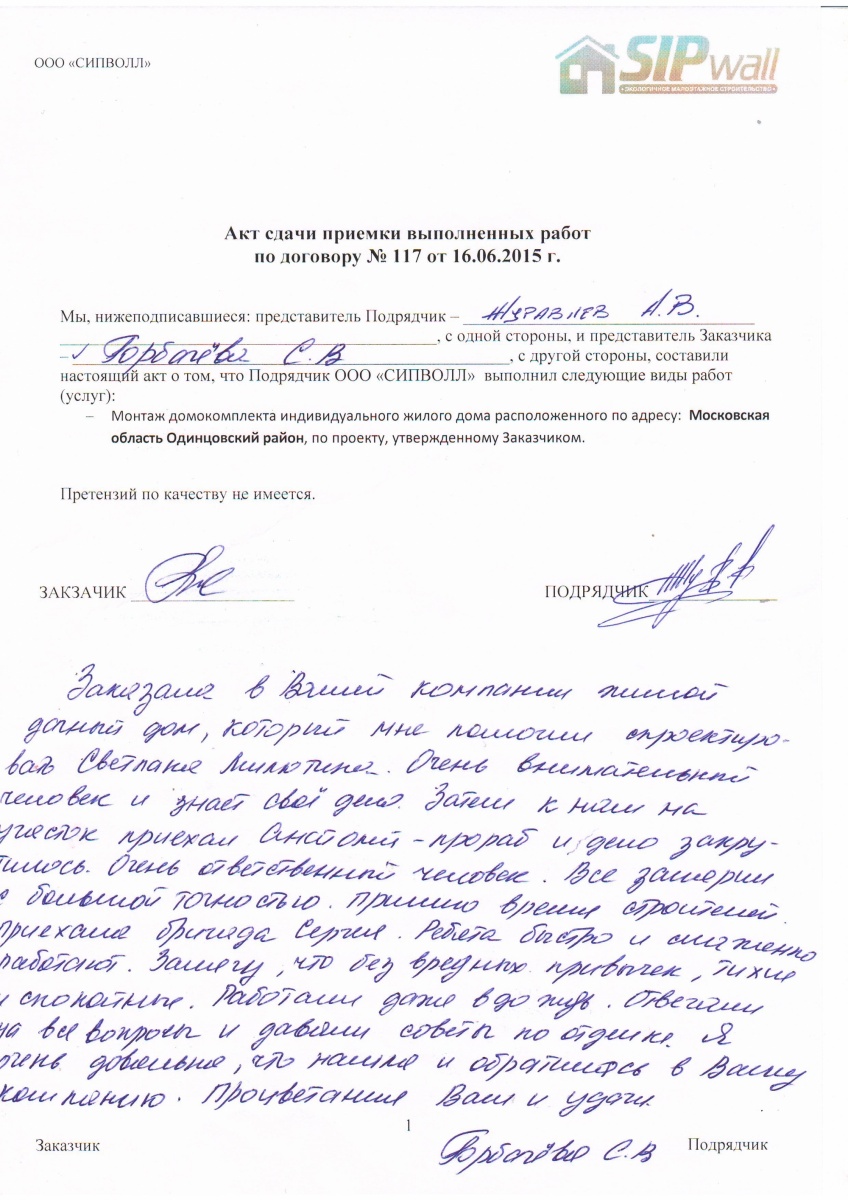 ООО «СИПВОЛЛ»
SIPwall
• ЭКОЛОГИЧНОЕ МАЛОЭТАЖНОЕ СТРОИТЕЛЬСТВО •
Акт сдачи приемки выполненных работ
по договору № 117 от 16.06.2015 г.
Мы, нижеподписавшиеся: представитель Подрядчик – Журавлев А.В.
, с одной стороны, и представитель Заказчика
– Горбачёва С.В , с другой стороны, составили
настоящий акт о том, что Подрядчик ООО «СИПВОЛЛ» выполнил следующие виды работ
(услуг):
– Монтаж домокомплекта индивидуального жилого дома расположенного по адресу: Московская
область Одинцовский район, по проекту, утвержденному Заказчиком.
Претензий по качеству не имеется.
ЗАКЗАЧИК
ПОДРЯДЧИК
Заказала в Вашей компании жилой
дачный дом, который мне помогли спроектиро-
вать Светлана Милютина. Очень внимательный
человек и знает своё дело. Затем к нам на
участок приехал Анатолий - прораб и дело закру-
тилось. Очень ответственный человек. Все замерил
с большой точностью. Пришло время строителей.
приехала бригада Сергея. Ребята быстро и слаженно
работают. Замечу, что без вредных привычек, тихие
и спокойные. Работали даже в дождь. Отвечали
на все вопросы и давали советы по отделке. Я
очень довольна, что нашла и обратилась в Вашу
компанию. Процветания Вам и удачи.
1
Заказчик Горбачёва С.В Подрядчик